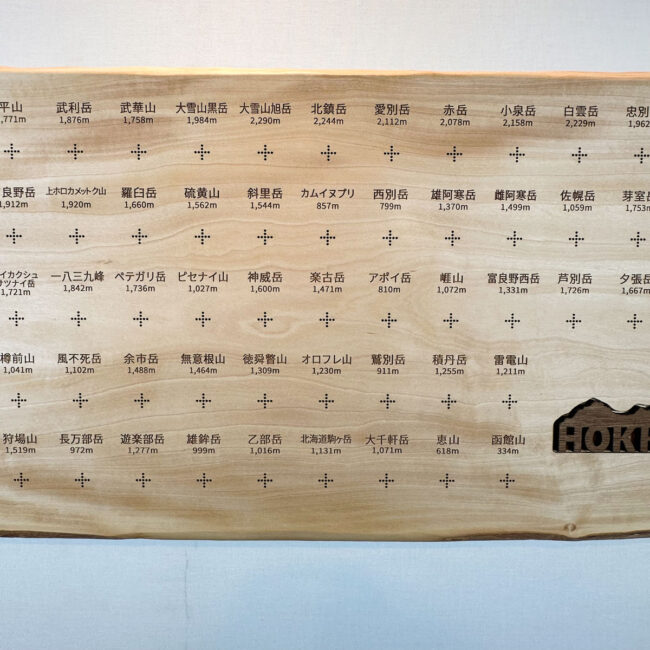 平山 武利岳 武華山 大雪山黒岳 大雪山旭岳 北鎮岳 愛別岳 赤岳 小泉岳 白雲岳 忠別
,771m 1,876m 1,758m 1,984m 2,290m 2,244m 2,112m 2,078m 2,158m 2,229m 1,962
良野岳 上ホロカメットク山 羅臼岳 硫黄山 斜里岳 カムイヌプリ 西別岳 雄阿寒岳 雌阿寒岳 佐幌岳 芽室岳
1,912m 1,920m 1,660m 1,562m 1,544m 857m 799m 1,370m 1,499m 1,059m 1,753m
イカクシュ
サツナイ岳 一八三九峰 ペテガリ岳 ピセナイ山 神威岳 楽古岳 アポイ岳 崕山 富良野西岳 芦別岳 夕張岳
1,721m 1,842m 1,736m 1,027m 1,600m 1,471m 810m 1,072m 1,331m 1,726m 1,667m
樽前山 風不死岳 余市岳 無意根山 徳舜瞥山 オロフレ山 鷲別岳 積丹岳 雷電山
1,041m 1,102m 1,488m 1,464m 1,309m 1,230m 911m 1,255m 1,211m
狩場山 長万部岳 遊楽部岳 雄鉾岳 乙部岳 北海道駒ヶ岳 大千軒岳 恵山 函館山
1,519m 972m 1,277m 999m 1,016m 1,131m 1,071m 618m 334m
HOK